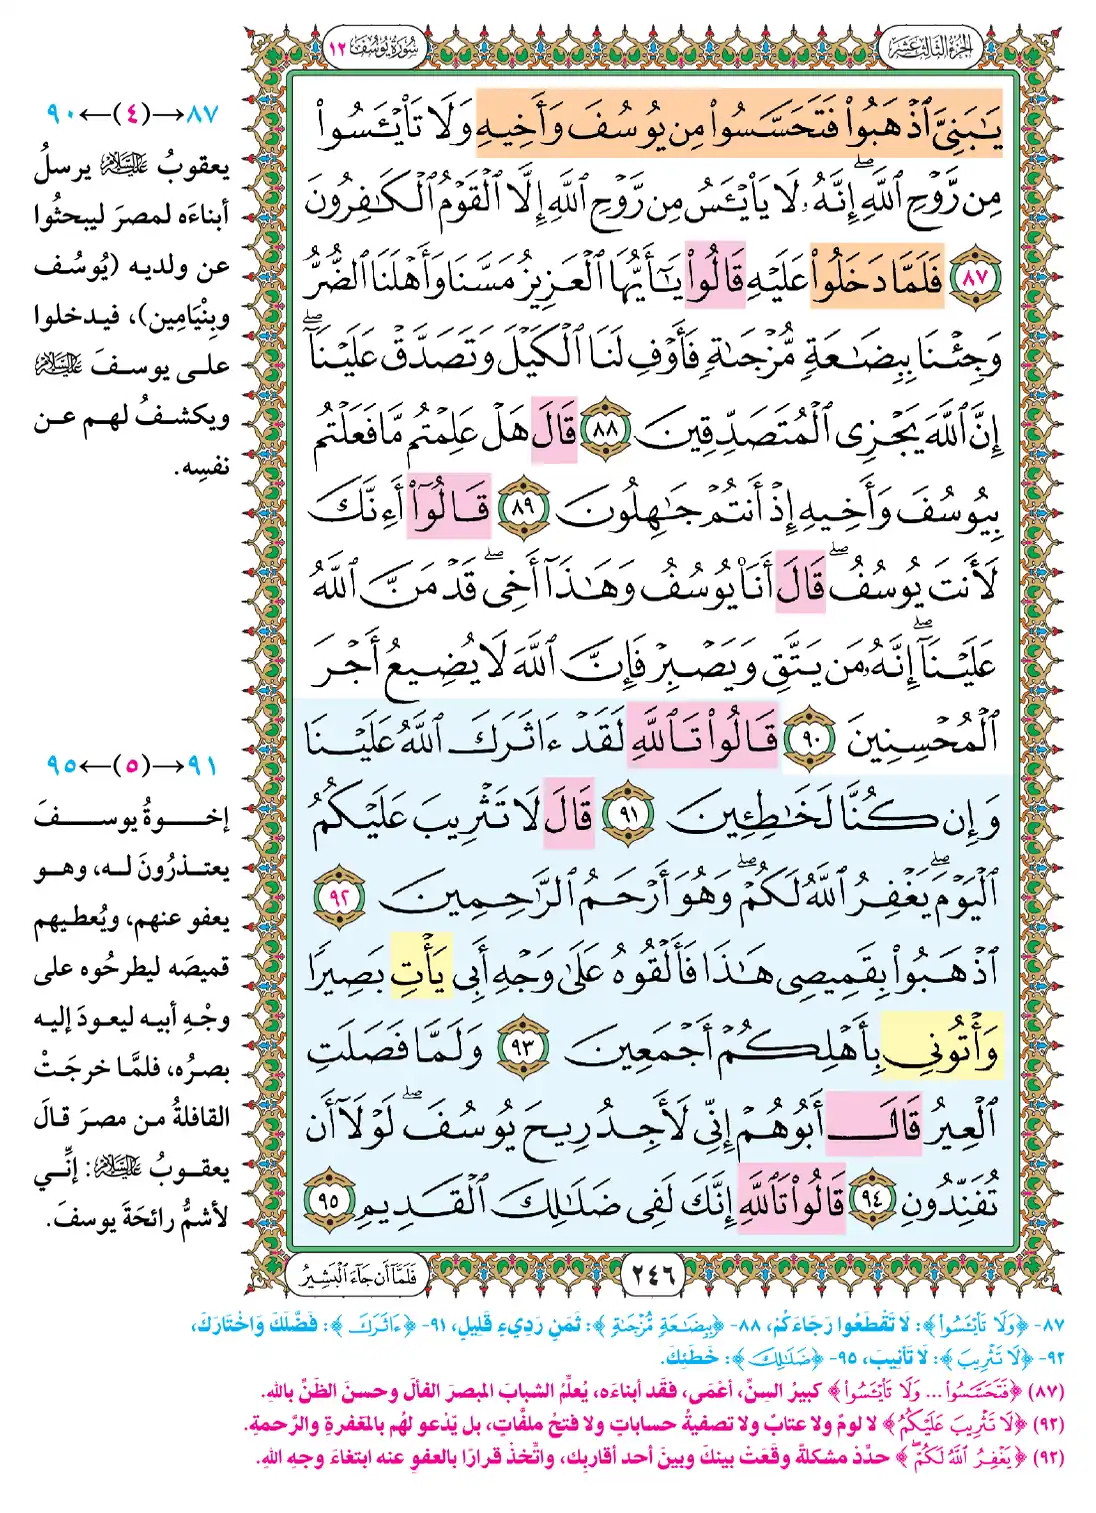 الجزء الثالث عشر
سورة يوسف ١٢
يَـٰبَنِىَّ ٱذْهَبُوا۟ فَتَحَسَّسُوا۟ مِن يُوسُفَ وَأَخِيهِ وَلَا تَا۟يْـَٔسُوا۟
مِن رَّوْحِ ٱللَّهِ ۖ إِنَّهُۥ لَا يَا۟يْـَٔسُ مِن رَّوْحِ ٱللَّهِ إِلَّا ٱلْقَوْمُ ٱلْكَـٰفِرُونَ
٨٧ فَلَمَّا دَخَلُوا۟ عَلَيْهِ قَالُوا۟ يَـٰٓأَيُّهَا ٱلْعَزِيزُ مَسَّنَا وَأَهْلَنَا ٱلضُّرُّ
وَجِئْنَا بِبِضَـٰعَةٍ مُّزْجَىٰةٍ فَأَوْفِ لَنَا ٱلْكَيْلَ وَتَصَدَّقْ عَلَيْنَآ ۖ
إِنَّ ٱللَّهَ يَجْزِى ٱلْمُتَصَدِّقِينَ ٨٨ قَالَ هَلْ عَلِمْتُم مَّا فَعَلْتُم
بِيُوسُفَ وَأَخِيهِ إِذْ أَنتُمْ جَـٰهِلُونَ ٨٩ قَالُوٓا۟ أَءِنَّكَ
لَأَنتَ يُوسُفُ ۖ قَالَ أَنَا۠ يُوسُفُ وَهَـٰذَآ أَخِى ۖ قَدْ مَنَّ ٱللَّهُ
عَلَيْنَآ ۖ إِنَّهُۥ مَن يَتَّقِ وَيَصْبِرْ فَإِنَّ ٱللَّهَ لَا يُضِيعُ أَجْرَ
ٱلْمُحْسِنِينَ ٩٠ قَالُوا۟ تَٱللَّهِ لَقَدْ ءَاثَرَكَ ٱللَّهُ عَلَيْنَا
وَإِن كُنَّا لَخَـٰطِـِٔينَ ٩١ قَالَ لَا تَثْرِيبَ عَلَيْكُمُ
ٱلْيَوْمَ ۖ يَغْفِرُ ٱللَّهُ لَكُمْ ۖ وَهُوَ أَرْحَمُ ٱلرَّٰحِمِينَ ٩٢
ٱذْهَبُوا۟ بِقَمِيصِى هَـٰذَا فَأَلْقُوهُ عَلَىٰ وَجْهِ أَبِى يَأْتِ بَصِيرًا
وَأْتُونِى بِأَهْلِكُمْ أَجْمَعِينَ ٩٣ وَلَمَّا فَصَلَتِ
ٱلْعِيرُ قَالَ أَبُوهُمْ إِنِّى لَأَجِدُ رِيحَ يُوسُفَ ۖ لَوْلَآ أَن
تُفَنِّدُونِ ٩٤ قَالُوا۟ تَٱللَّهِ إِنَّكَ لَفِى ضَلَـٰلِكَ ٱلْقَدِيمِ ٩٥
٨٧→(٤)←٩٠
يعقوبُ عليه السلام يرسلُ
أبناءَه لمصرَ ليبحثُوا
عن ولديه (يُوسُف
وبِنْيَامِين)، فيدخلوا
على يوسفَ عليه السلام
ويكشفُ لهم عن
نفسِه.
٩١→(٥)←٩٥
إخوةُ يوسفَ
يعتذرُونَ له، وهو
يعفو عنهم، ويُعطيهم
قميصَه ليطرحُوه على
وجْهِ أبيه ليعودَ إليه
بصرُه، فلمَّا خرجَتْ
القافلةُ من مصرَ قالَ
يعقوبُ عليه السلام: إنِّي
لأشمُّ رائحَةَ يوسفَ.
٢٤٦
فَلَمَّآ أَن جَآءَ ٱلْبَشِيرُ
٨٧- ﴿وَلَا تَا۟يْـَٔسُوا۟﴾: لَا تَقْطَعُوا رَجَاءَكُمْ، ٨٨- ﴿بِضَـٰعَةٍ مُّزْجَىٰةٍ﴾: ثَمَنٍ رَدِيءٍ قَلِيلٍ، ٩١- ﴿ءَاثَرَكَ﴾: فَضَّلَكَ وَاخْتَارَكَ،
٩٢- ﴿لَا تَثْرِيبَ﴾: لَا تَأْنِيبَ، ٩٥- ﴿ضَلَـٰلِكَ﴾: خَطَئِكَ.
(٨٧) ﴿فَتَحَسَّسُوا۟ ... وَلَا تَا۟يْـَٔسُوا۟﴾ كبيرُ السِنِّ، أعْمَى، فقَد أبناءَه، يُعلِّمُ الشبابَ المبصرَ الفألَ وحسنَ الظَنِّ باللهِ.
(٩٢) ﴿لَا تَثْرِيبَ عَلَيْكُمُ﴾ لا لومٌ ولا عتابٌ ولا تصفيةُ حساباتٍ ولا فتحُ ملفَّاتٍ، بل يَدْعو لهُم بالمَغفرةِ والرَّحمةِ.
(٩٢) ﴿يَغْفِرُ ٱللَّهُ لَكُمْ ۖ﴾ حدِّدْ مشكلةً وقَعَتْ بينكَ وبينَ أحد أقاربِك، واتَّخذْ قرارًا بالعفوِ عنه ابتغاءَ وجهِ اللهِ.